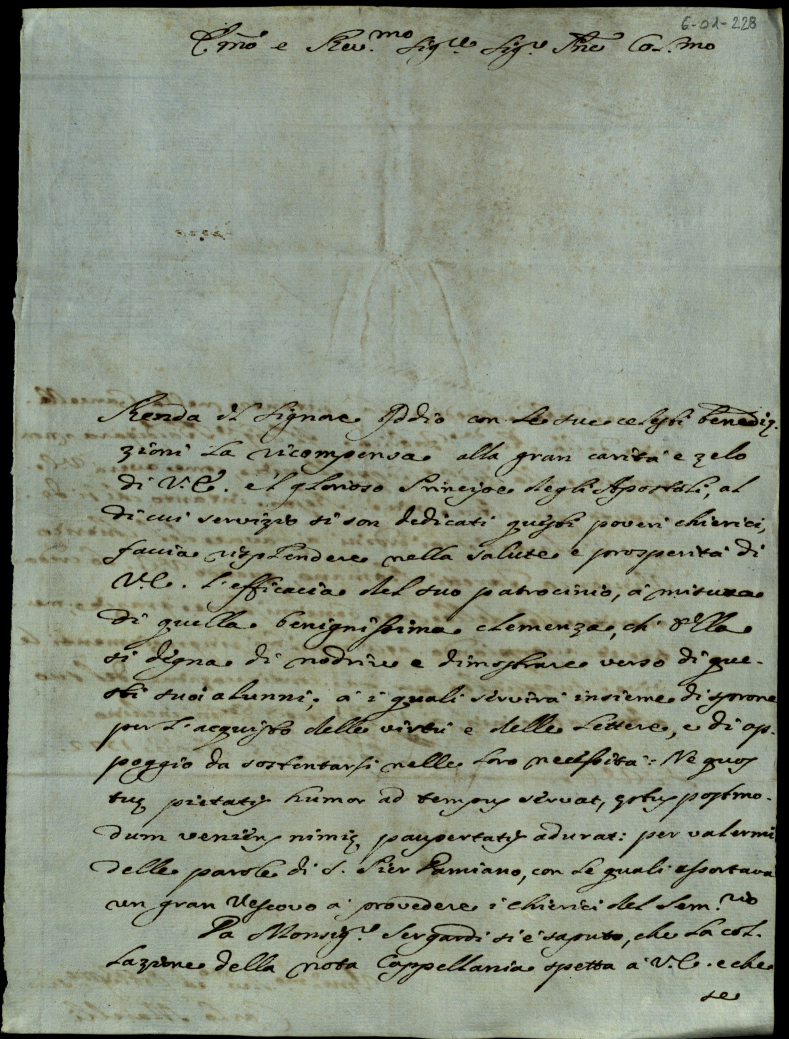 6-01-228
E.mo e Rev.mo Sig.re Sig.re P.ne Co.mo
Renda il Signore Iddio con le sue celesti benediz-
zioni la ricompensa alla gran carità e zelo
di V.E. e'l glorioso Principe degli Apostoli, al
di cui servizio si son dedicati questi poveri chierici,
faccia risplendere nella salute e prosperità di
V.E. l'efficacia del suo patrocinio, à misura
di quella benignissima clemenza, ch'Ella
si digna di nodrire e dimostrare verso di que-
sti suoi alunni; à i quali servirà insieme di sprone
per l'acquisto delle virtù e delle lettere, e di ap-
poggio da sostentarsi nelle loro necessità: Ne quos
tuę pietatis humor ad tempus servat, ęstus postmo-
dum veniens nimię paupertatis adurat: per valermi
delle parole di S. Pier Damiano, con le quali essortava
un gran Vescovo à provedere i chierici del Sem.rio
Da Monsig.r Sergardi si è saputo, che la col-
lazione della nota Cappellania spetta à V.E. e che
se